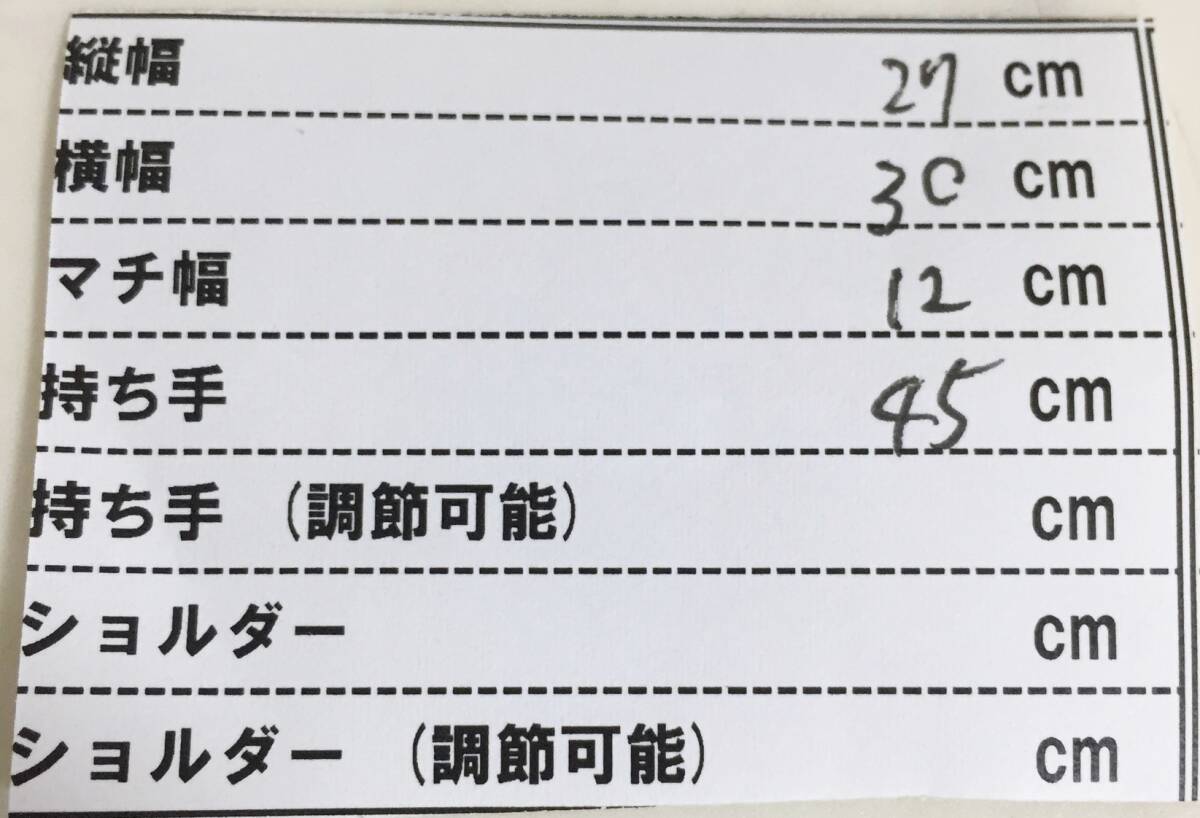 縦幅 27 cm
横幅 30 cm
マチ幅 12 cm
持ち手 45 cm
持ち手 (調節可能) cm
ショルダー cm
ショルダー (調節可能) cm